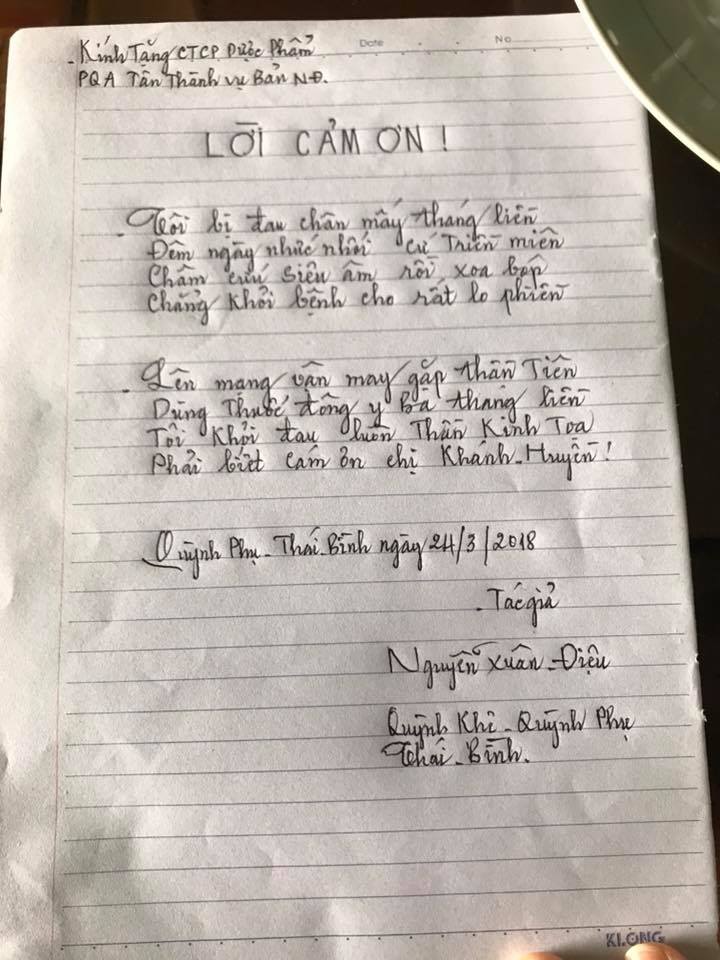 Date No
- Kính Tặng CTCP Dược Phẩm
PQA Tân Thành Vụ Bản NĐ.
LỜI CẢM ƠN !
- Tôi bị đau chân mấy tháng liền
Đêm ngày nhức nhối cứ Triền miên
Châm cứu siêu âm rồi xoa bóp
Chẳng khỏi bệnh cho rất lo phiền
- Lên mạng vận may gặp thần Tiên
Dùng Thuốc đông y Ba tháng liền
Tôi Khỏi đau luôn Thần Kinh Tọa
Phải biết cám ơn chị Khánh-Huyền !
Quỳnh Phụ - Thái Bình ngày 24/3/2018
- Tác giả
Nguyễn Xuân - Điệu
Quỳnh Khê - Quỳnh Phụ
Thái - Bình.
KLONG